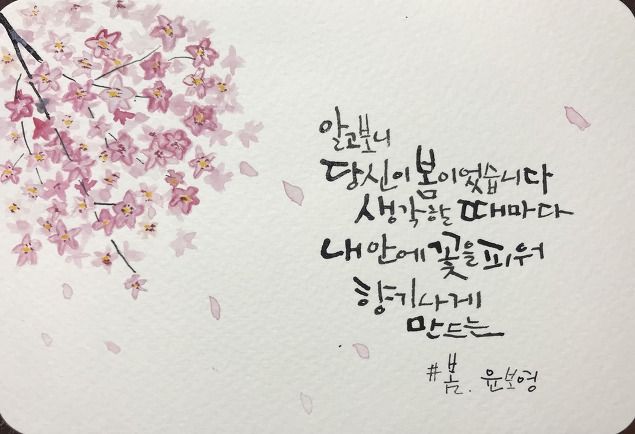 알고보니
당신이 봄이었습니다
생각할 때마다
내 안에 꽃을 피워
향기나게
만드는
#봄. 윤보영